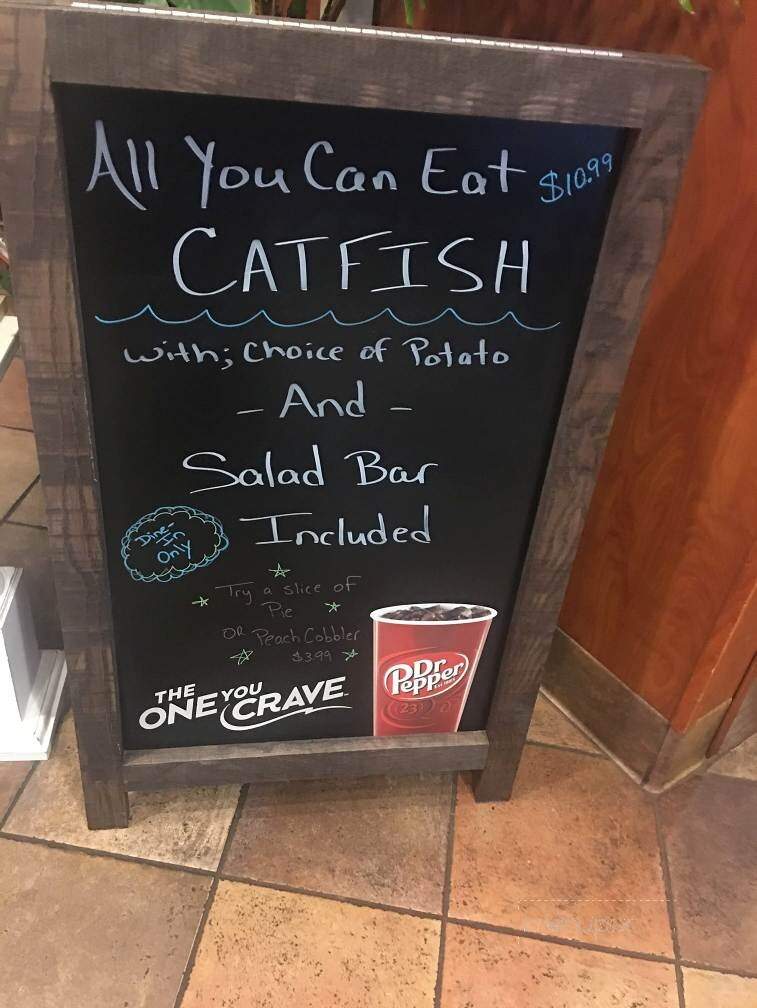 All You Can Eat $10.99
CATFISH
with; Choice of Potato
- And -
Salad Bar
Included
Dine-
In
Only
Try a slice of
Pie
OR Peach Cobbler
$3.99
THE
ONE YOU
CRAVE
Dr
Pepper
23